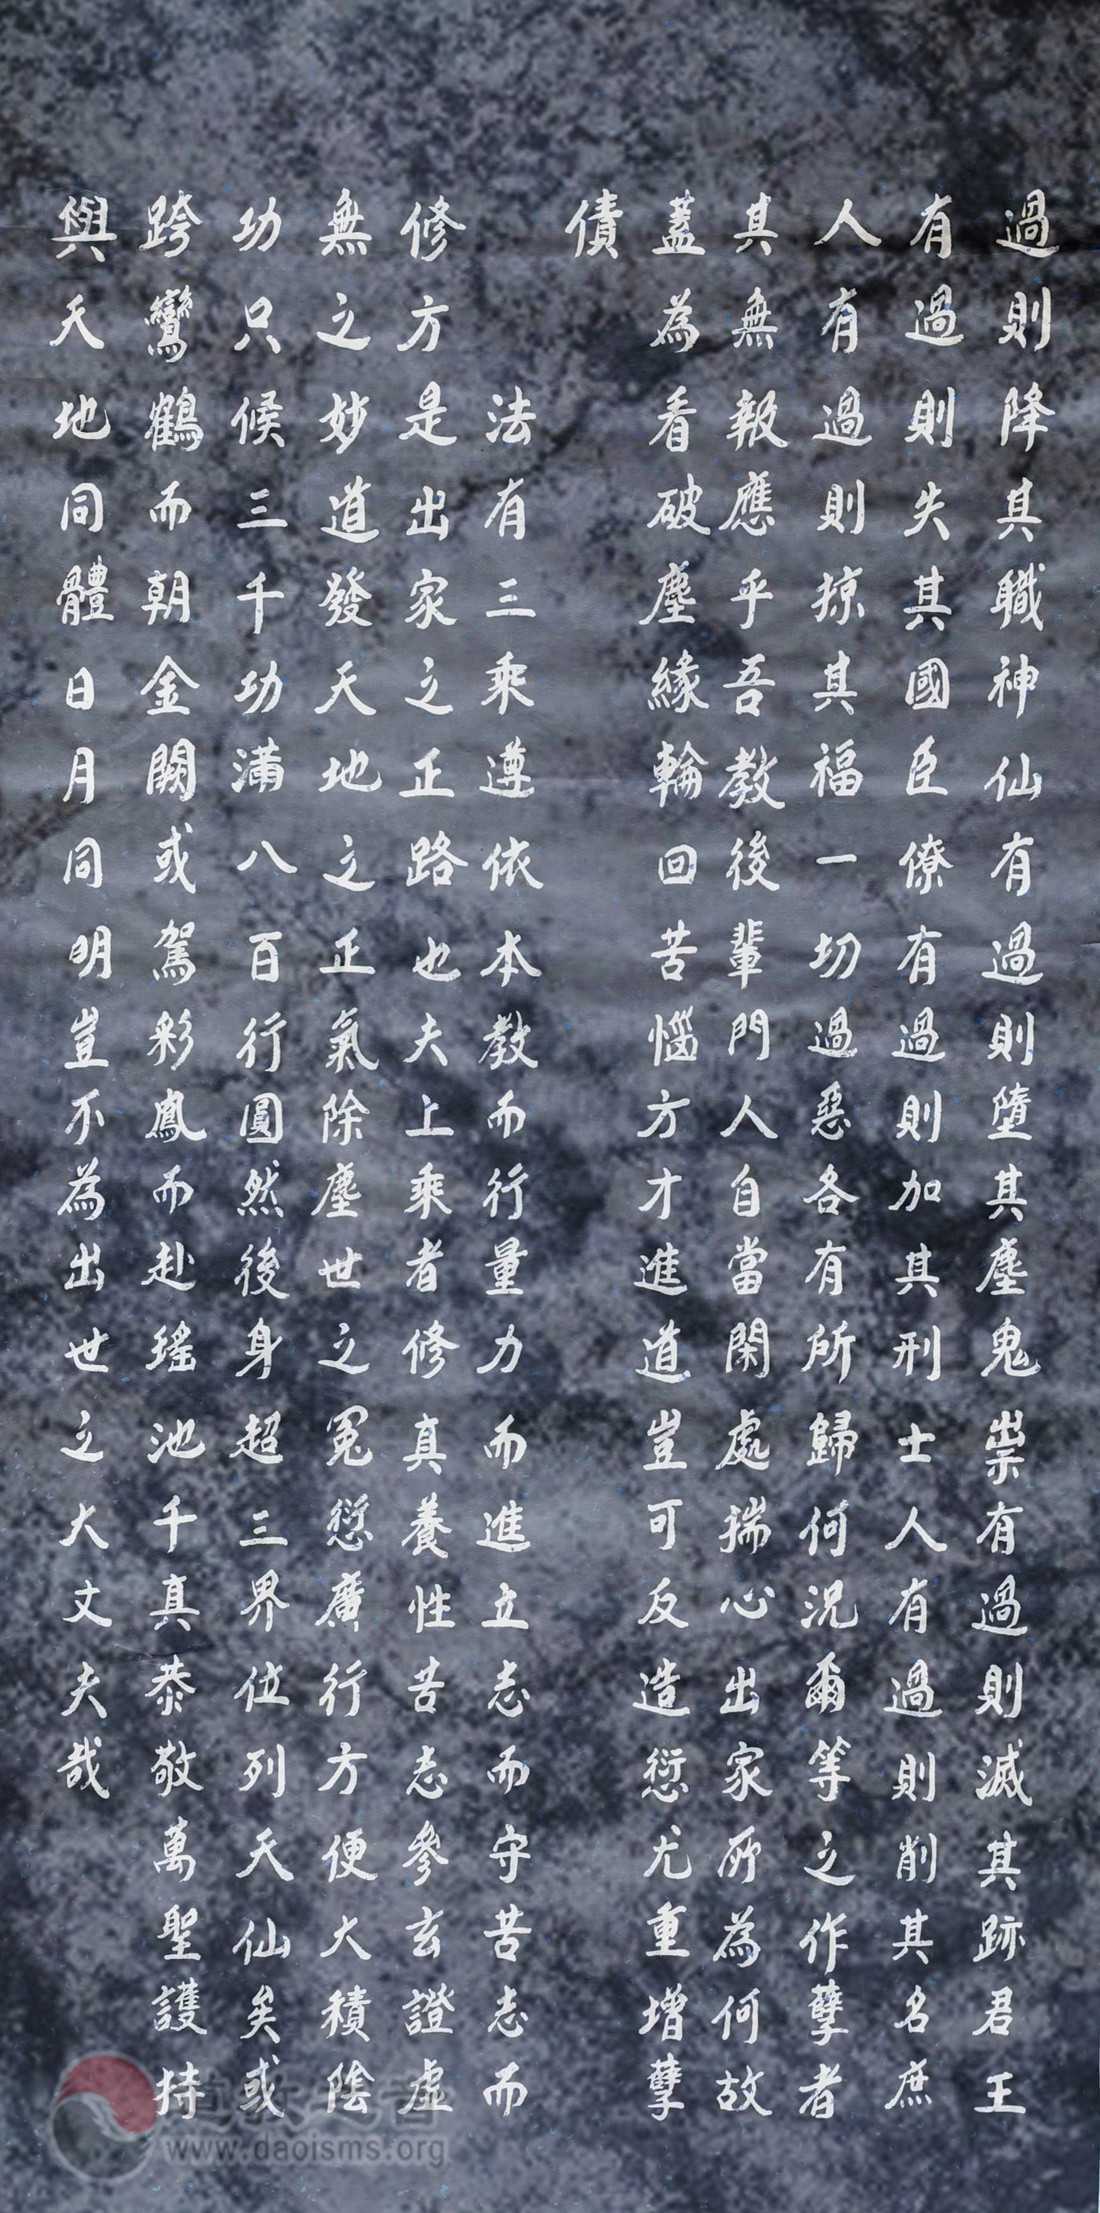 過則降其職神仙有過則墮其塵鬼祟有過則滅其跡君王
有過則失其國臣僚有過則加其刑士人有過則削其名庶
人有過則掠其福一切過惡各有所歸何況爾等之作孽者
其無報應乎吾教後輩門人自當閑處揣心出家所為何故
蓋為看破塵緣輪回苦惱方才進道豈可反造愆尤重增孽
債
法有三乘遵依本教而行量力而進立志而守苦志而
修方是出家之正路也夫上乘者修真養性苦志參玄證虛
無之妙道發天地之正氣除塵世之冤愆廣行方便大積陰
功只候三千功滿八百行圓然後身超三界位列天仙矣或
跨鸞鶴而朝金闕或駕彩鳳而赴瑤池千真恭敬萬聖護持
與天地同體日月同明豈不為出世之大丈夫哉
道教之音
www.daoisms.org